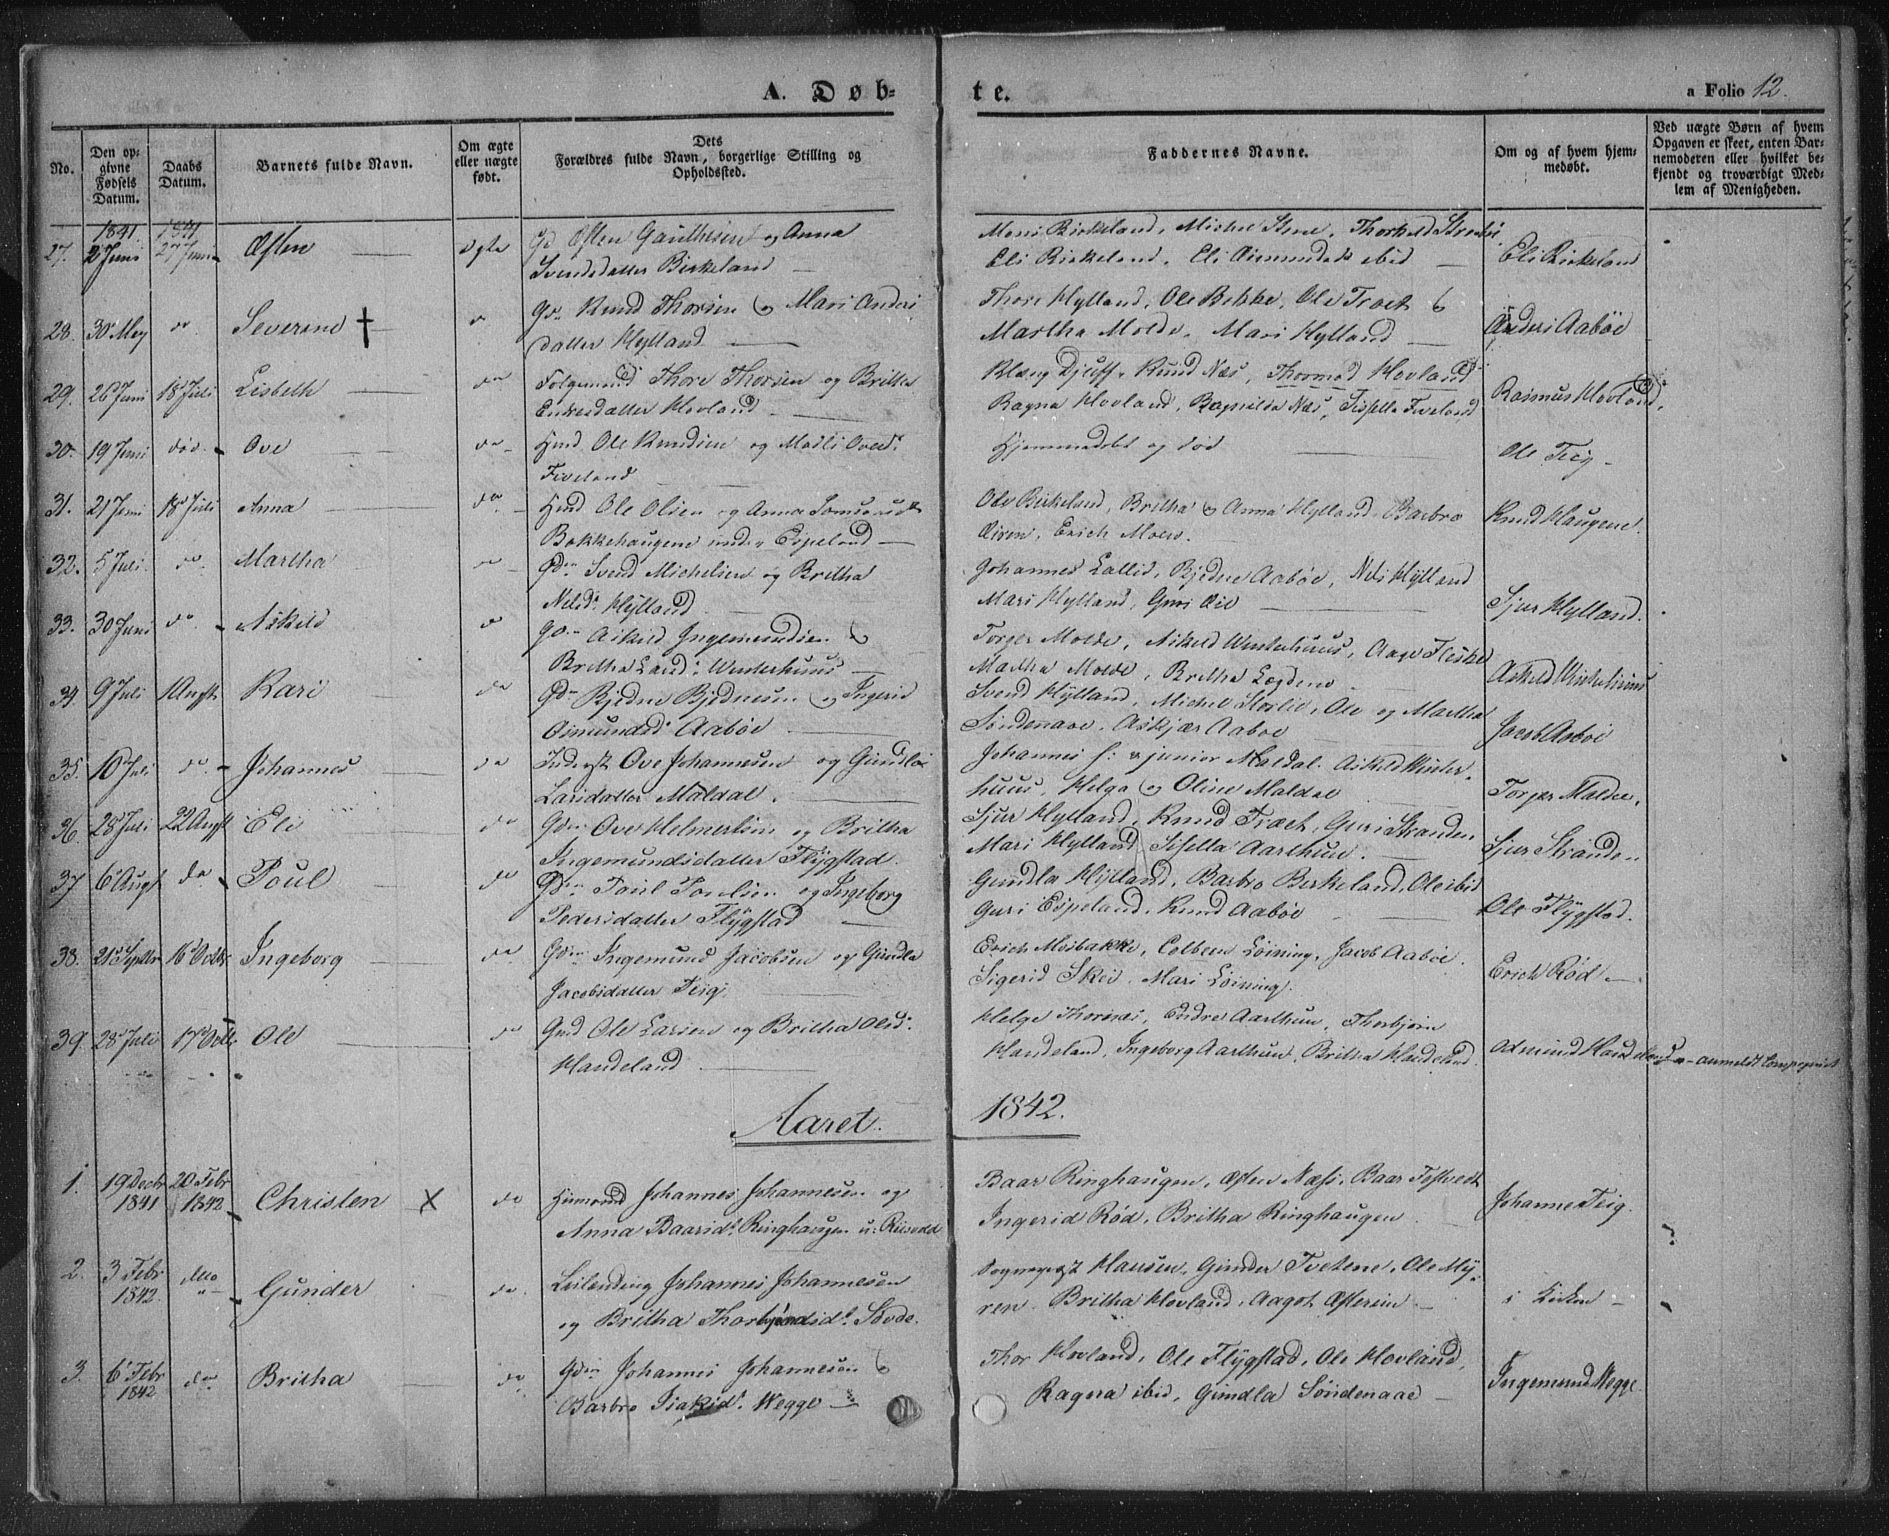 A. Døb-
te.
a Folio 12.
No.
Den op-
givne
Fødsels
Datum.
Daabs
Datum.
Barnets fulde Navn.
Om ægte
eller uægte
født.
Dets
Forældres fulde Navn, borgerlige Stilling og
Opholdssted.
Faddernes Navne.
Om og af hvem hjem-
medøbt.
Ved uægte Børn af hvem
Opgaven er skeet, enten Bar-
nemoderen eller hvilket be-
kjendt og troværdigt Med-
lem af Menigheden.
1841 1841
27. 2 Juni 27 Juni Østen ægte Gd Østen Gauthesen og Anna
Svendsdatter Birkeland
Mons Birkeland, Michel Stene, Thorkild
Eli Birkeland, Eli ibid
Eli Birkeland
28. 30 Mey do Severine † do Gdm Knud Thorsen og Mari Anders
datter Hylland
Thore Hylland, Ole Bekke, Ole Traet &
Martha Molde, Mari Hylland
Anders Aabøe
29. 26 Juni 18 Juli Lisbeth do Thore Thorsen og Britha
datter Hovland
Djuff, Knud Næs, Thormod Hovland
Ragna Hovland, Ragnilda Næs, Fiveland
Rasmus Hovland.
30. 19 Juni død Ove do Hmd Ole Knudsen og Madli Oveds
Fiveland
Hjemmedøbt og død
Ole Teig
31. 21 Juni 18 Juli Anna do Hmd Ole Olsen og Anna
Bakkehaugene under Espeland
Ole Birkeland, Britha & Anna Hylland, Barbro
Erich Moen.
Knud Haugene
32. 5 Juli do Martha do Gdm Svend Michelsen og Britha
Nelsd. Hylland
Johannes Lallid, Bjødne Aabøe, Nels Hylland
Mari Hylland, Guri
Sjur Hylland.
33. 30 Juni do Askild do Gdm Askild Ingemundsen &
Britha Lardsd: Winterhuus
Torger Molde, Askild Winterhuus, Aage Fleske
Martha Molde, Britha
Askild Winterhuus
34. 9 Juli 1 Augst Kari do Gdm Bjødne Bjødnesen og Ingerid
Osmundsd. Aabøe
Svend Hylland, Michel Størlie, Ole og Martha
Søndenaae, Askjær Aabøe
Jacob Aabøe
35. 10 Juli do Johannes do Inderst Ove Johannesen og Gundla
Larsdatter Maldal.
Johannes s: & junior Maldal. Askild Winter-
huus, Helga og Oline Maldal
Torger Maldal.
36. 28 Juli 22 Augst Eli do Gdm Ove Helmersen og Britha
Ingemundsdatter Flÿgstad.
Sjur Hylland, Knud Træet, Guri Stranden
Mari Hylland, Sesella Aarthun.
Sjur Stranden
37. 6 Augst do Poul do Gdm Poul Poulsen og Ingeborg
Pedersdatter Flÿgstad
Gundla Hÿlland, Barbro Birkeland, Ole ibid
Guri Espeland, Knud Aabøe
Ole Flÿgstad.
38. 21 Septbr 16 Octbr Ingeborg do Gdm Ingemund Jacobsen og Gundla
Jacobsdatter Teig.
Erich Mosbakke, Colbeen Løining, Jacob Aabøe.
Sigerid Skei. Mari Løining.
Erich Rød
39. 28 Juli 17 Octbr Ole do Gmd Ole Larsen og Britha Olsd.
Handeland
Helge Thornæs, Endre Aarthun, Thorbjørn
Handeland, Ingeborg Aarthun, Britha Handeland.
Admund Handeland anmeldt
Aaret 1842.
1. 19 Decbr 1841 20 Febr 1842 Christen X do Huusmand Johannes Johannesen og
Anna Baarsd. Ringhaugen u: Riisvold
Baar Ringhaugen, Østen Næss, Baar Tostvedt
Ingerid Rød, Britha Ringhaugen
Johanne Teig.
2. 3 Febr 1842. ditto Gunder do. Leilending Johannes Johannesen
og Britha Thorbjørnsd. Søvde.
Sognepræst Hansen, Gunder Tvetene, Ole My-
ren. Britha Hovland, Aagot Østereim
i Kirken
3. 6 Febr 1842 do Britha do. Gdm Johannes Johannesen &
Barbro Isaksd. Hegge
Thor Hovland, Ole Flÿgstad, Ole Hovland,
Ragna ibid, Gundla Søndenaae
Ingemund Hegge